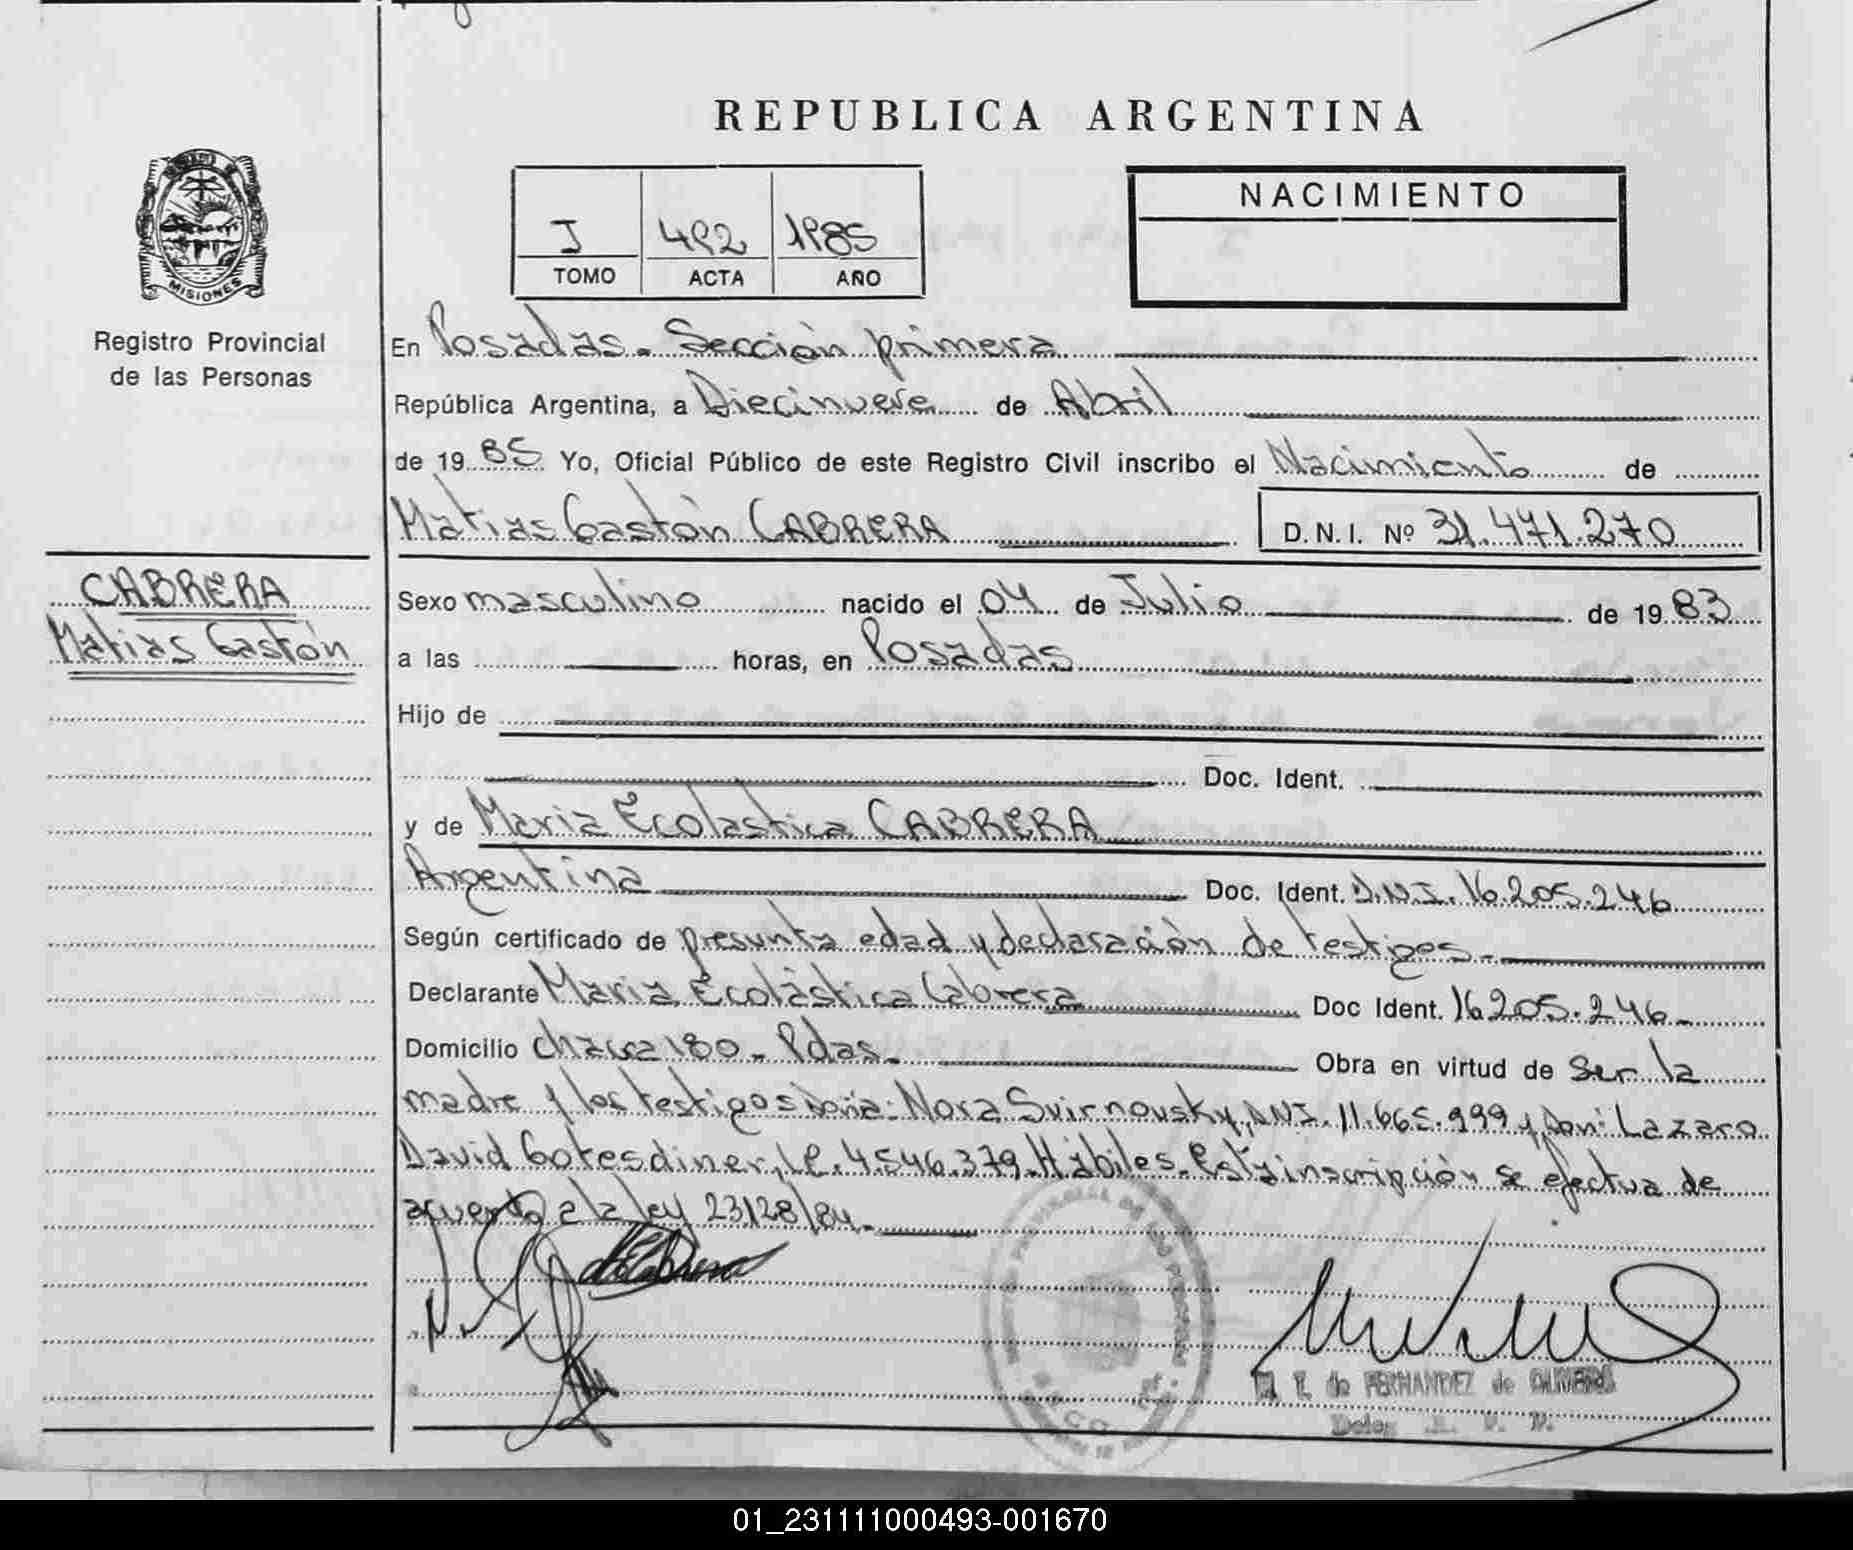 REPUBLICA ARGENTINA
MISIONES
Registro Provincial
de las Personas
I 492 1985
TOMO ACTA AÑO
NACIMIENTO
En Posadas. Sección primera
República Argentina, a Diecinueve de Abril
de 1985 Yo, Oficial Público de este Registro Civil inscribo el Nacimiento de
Matias Gastón CABRERA D.N.I. Nº 31.471.270
CABRERA
Matias Gastón
Sexo masculino nacido el 04 de Julio de 1983
a las horas, en Posadas
Hijo de
Doc. Ident.
y de Maria Ecolastica CABRERA
Argentina Doc. Ident. D.N.I. 16.205.246
Según certificado de presunta edad y declaración de testigos.
Declarante Maria Ecolástica Cabrera Doc Ident. 16.205.246
Domicilio chacra 180 - Pdas. Obra en virtud de Ser la
madre y los testigos Doña: Nora Svirnovsky, DNI. 11.665.999 y Don: Lazaro
David Gotesdiner, LE. 4.546.379. Hábiles. Esta inscripción se efectua de
acuerdo a la ley 23128/84.
M. E. de FERNANDEZ de OLIVERA
01_231111000493-001670